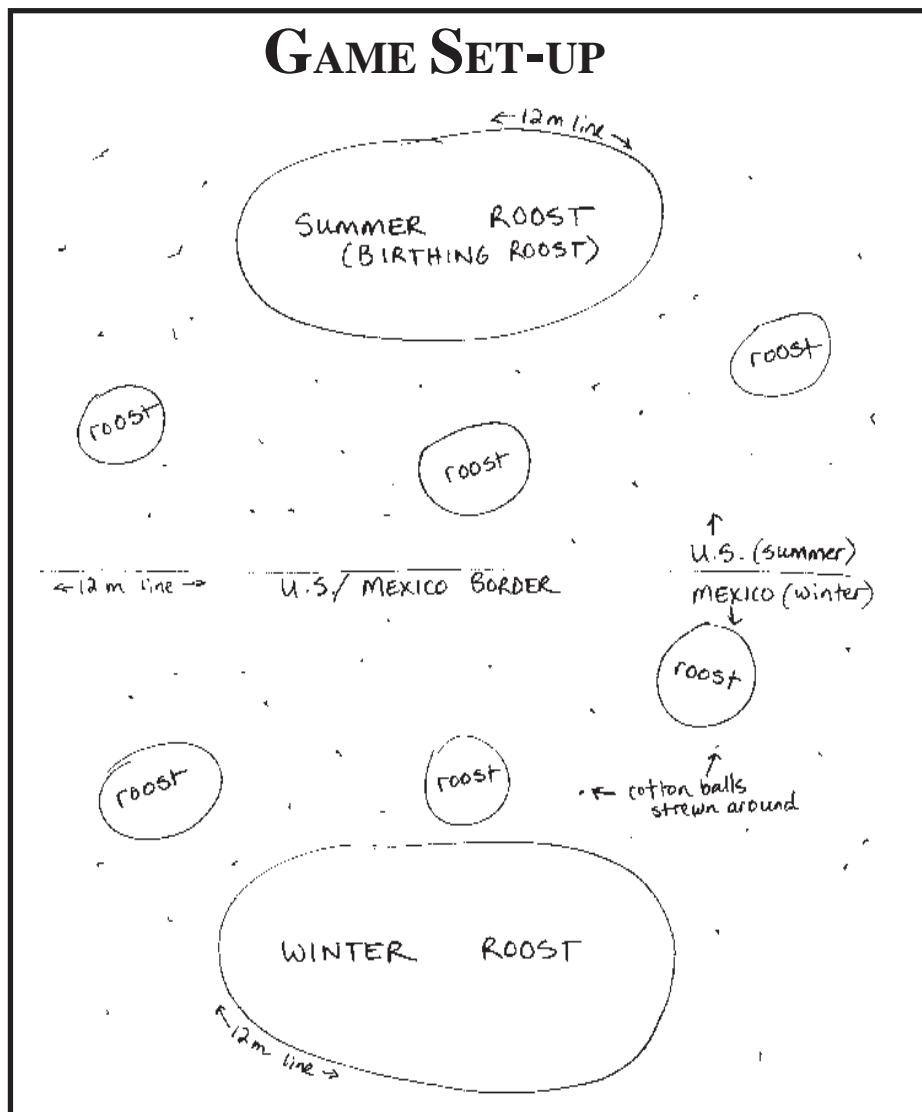 GAME SET-UP
←12 m line→
SUMMER ROOST
(BIRTHING ROOST)
roost
roost
roost
↑
U.S. (summer)
←12 m line→
U.S./MEXICO BORDER
MEXICO (winter)
↓
roost
roost
roost
↑
← cotton balls
strewn around
WINTER ROOST
←12 m line→